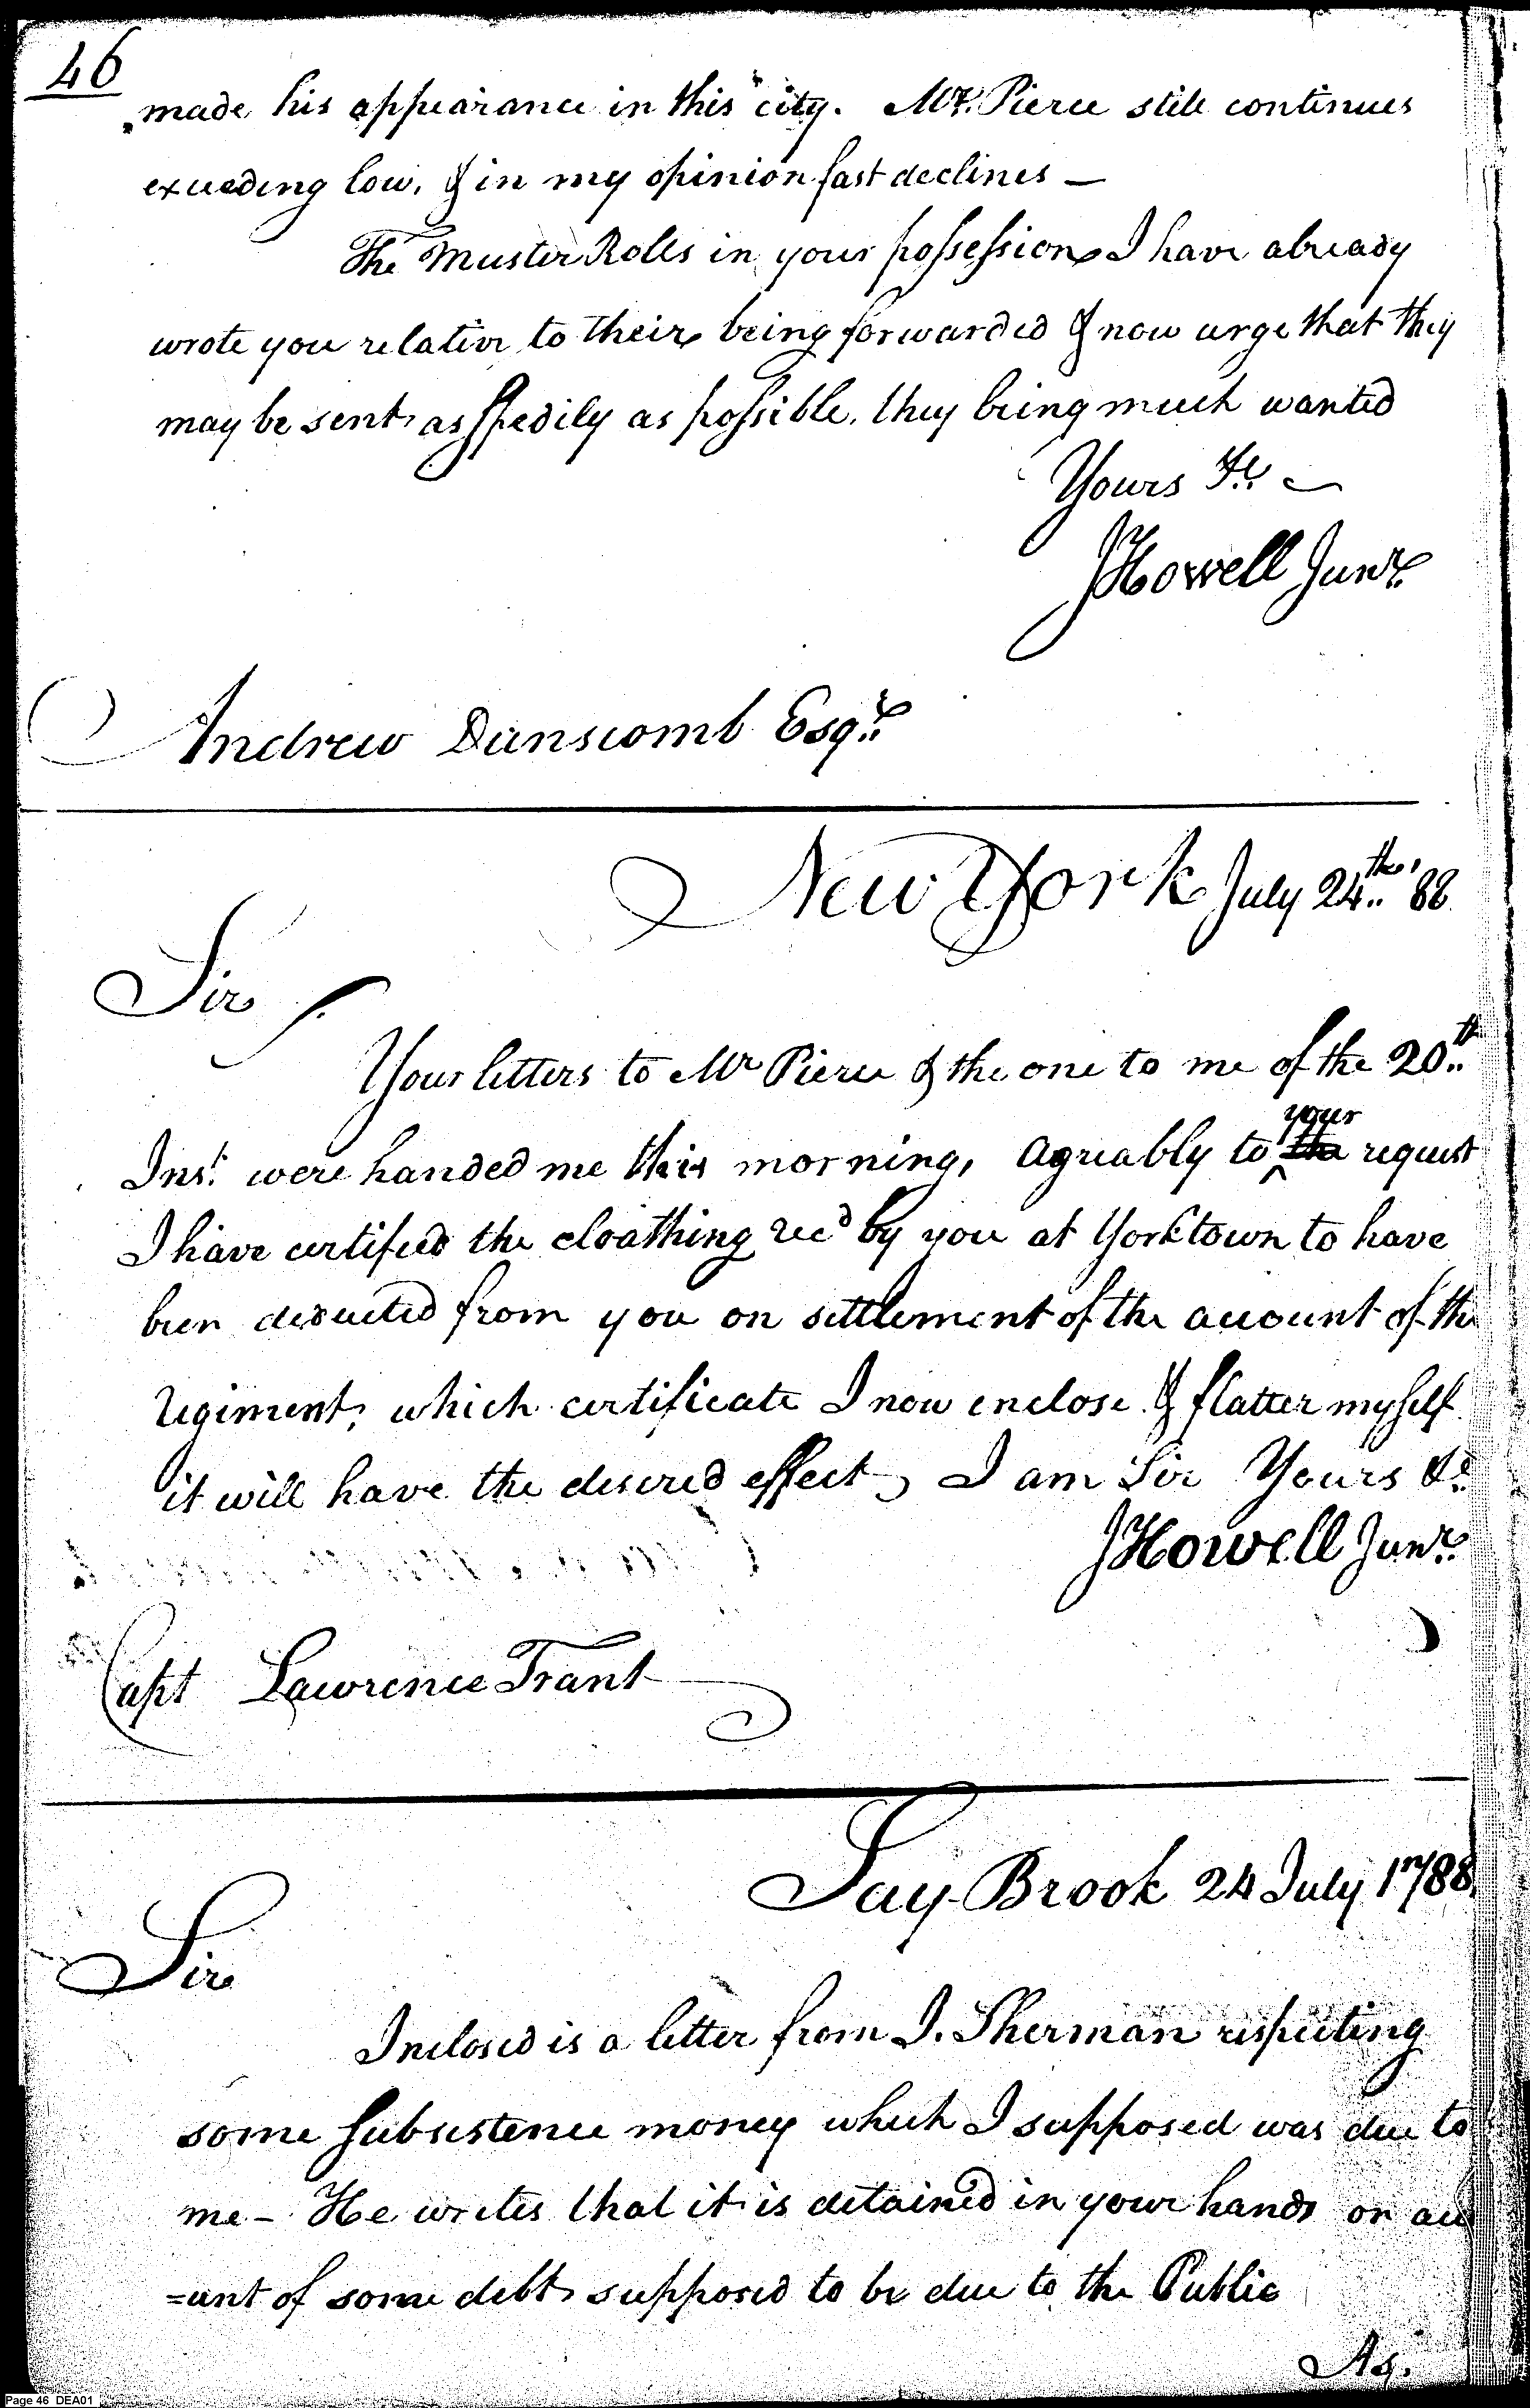 46
made his appearance in this city. Mr. Pierce still continues
exceeding low, & in my opinion fast declines —
The Muster Rolls in your possession I have already
wrote you relative to their being forwarded & now urge that they
may be sent as spedily as possible, they being much wanted
Yours &c
JHowell Junr.
Andrew Dunscomb Esqr.
New York July 24th. '88
Sir
Your letters to Mr Pierce & the one to me of the 20th.
Inst. were handed me this morning, agreably to the your request
I have certified the cloathing recd by you at Yorktown to have
been deducted from you on settlement of the account of the
regiment, which certificate I now enclose & flatter myself
it will have the desired effect, I am Sir Yours &c.
JHowell Junr.
Capt Lawrence Trant
Say Brook 24 July 1788
Sir
Inclosed is a letter from I. Sherman respecting
some subsistence money which I supposed was due to
me - He writes that it is detained in your hands on acc
=unt of some debt supposed to be due to the Public
As.
Page 46 DEA01